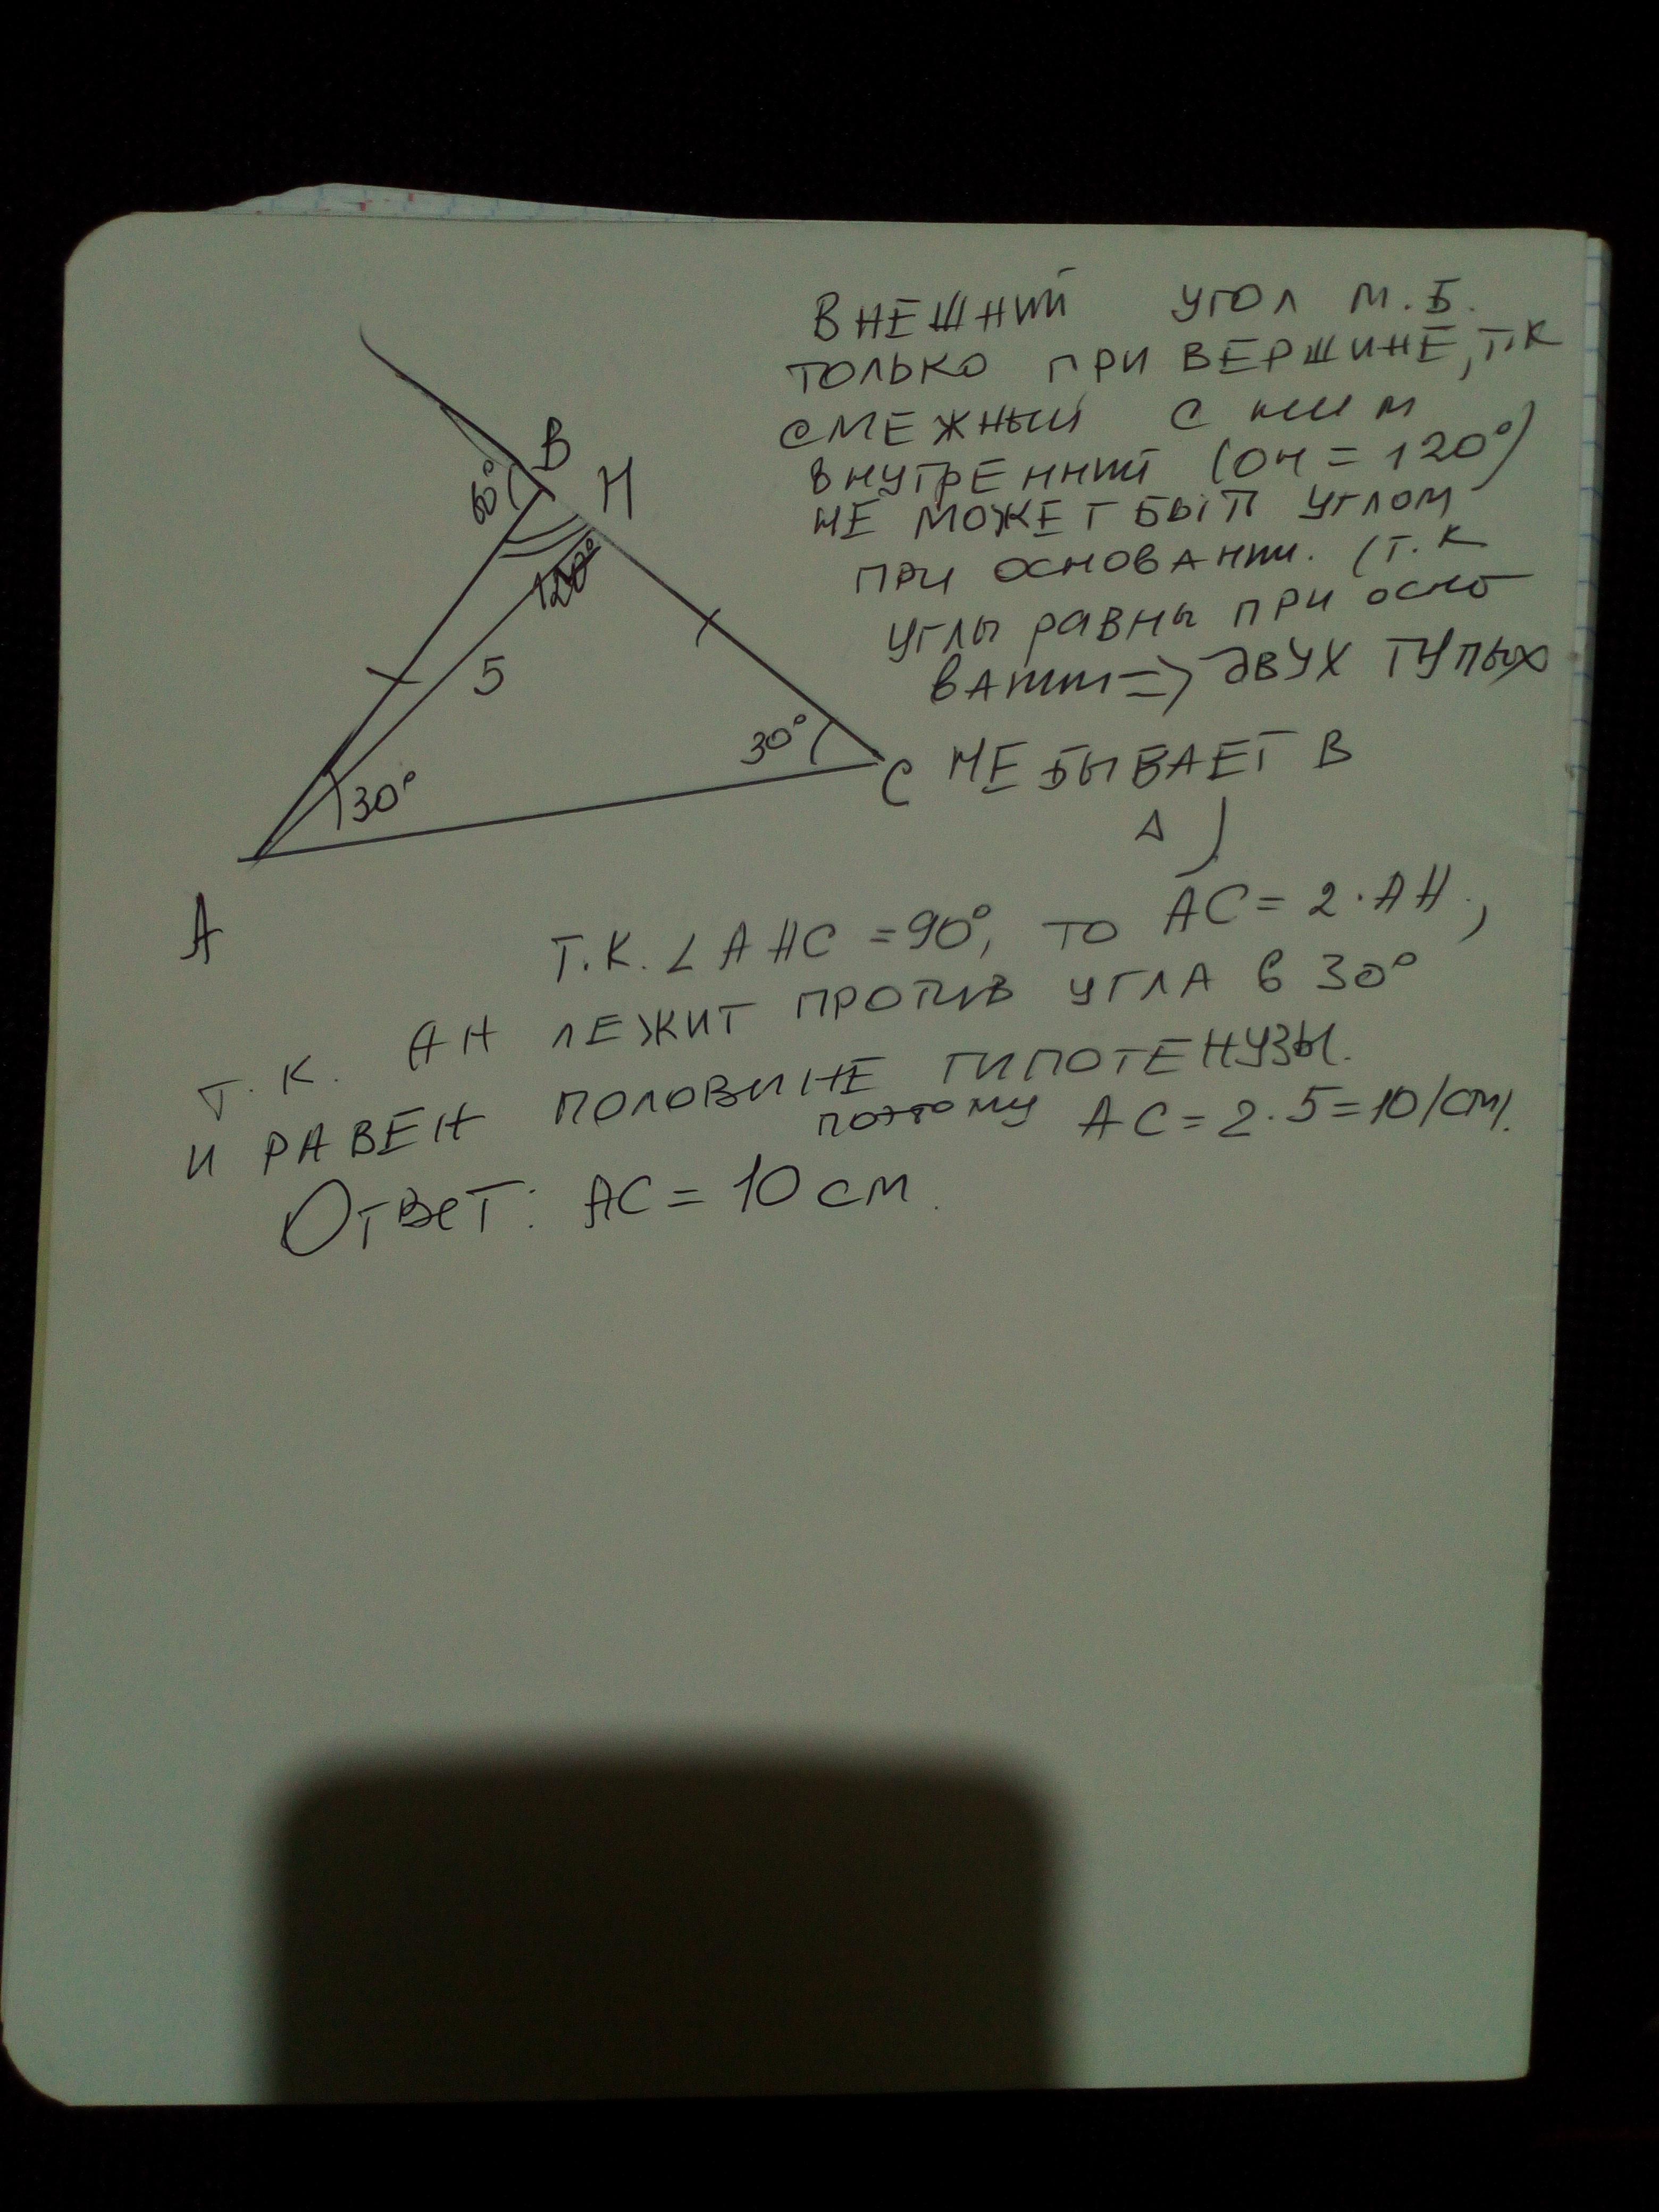 ВНЕШНИЙ УГОЛ М.Б.
ТОЛЬКО ПРИ ВЕРШИНЕ, Т.К
СМЕЖНЫЙ С НИМ
ВНУТРЕННИЙ (ОН = 120°)
НЕ МОЖЕТ БЫТЬ УГЛОМ
ПРИ ОСНОВАНИИ. (Т.К
УГЛЫ РАВНЫ ПРИ ОСНО
ВАНИИ => ДВУХ ТУПЫХ
НЕ БЫВАЕТ В
Δ )
B
H
60°
120°
5
30°
30°
C
A
Т.К. ∠AHC = 90°, ТО AC = 2·AH,
Т.К. AH ЛЕЖИТ ПРОТИВ УГЛА В 30°
И РАВЕН ПОЛОВИНЕ ГИПОТЕНУЗЫ.
поэтому AC = 2·5 = 10 (см).
Ответ: AC = 10 см.